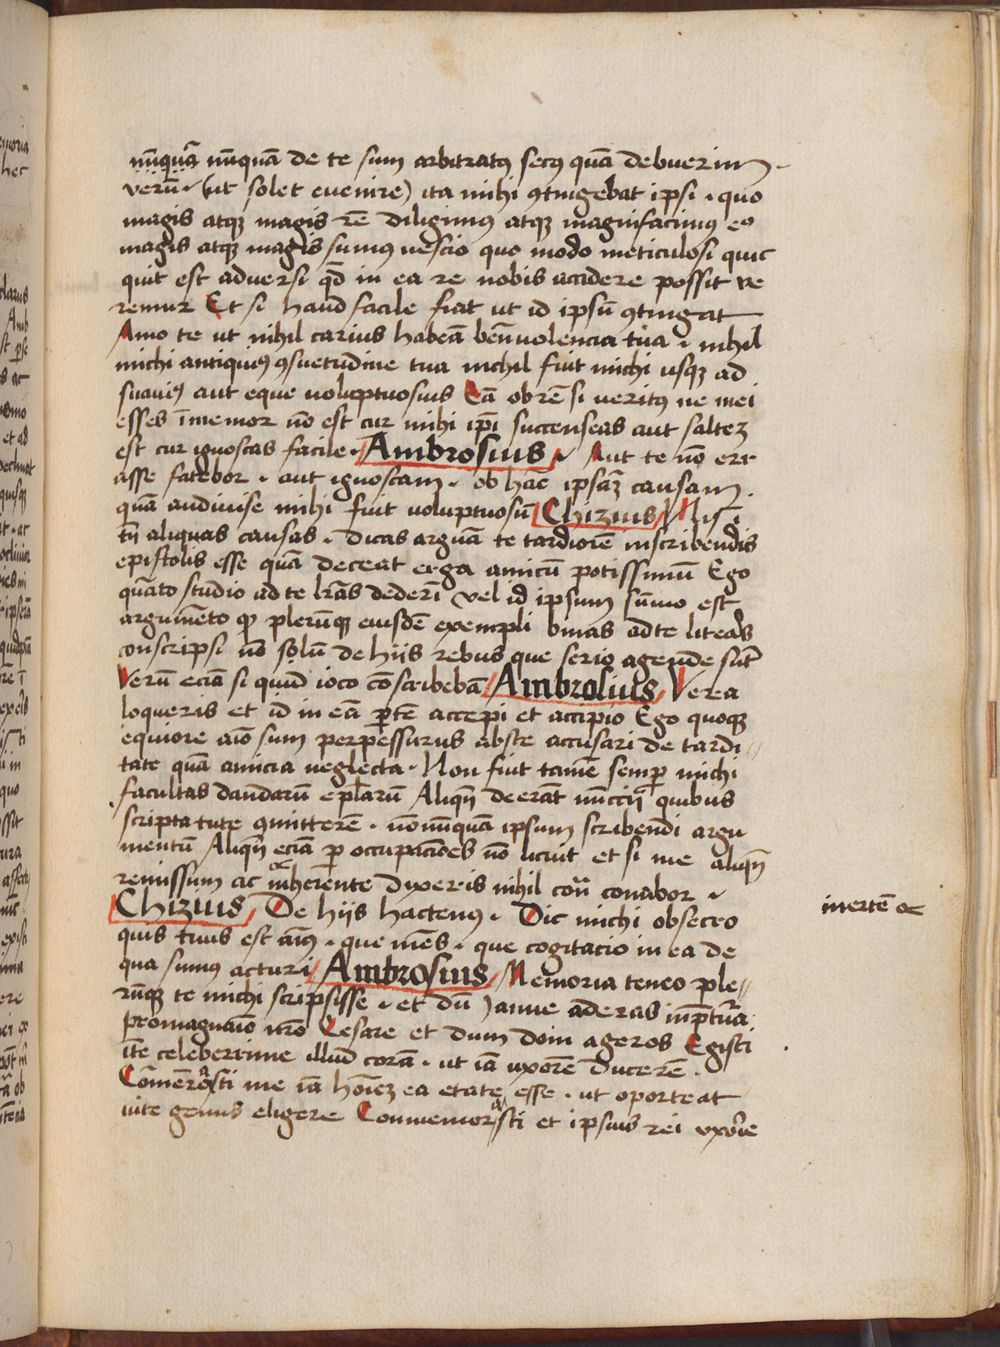 nūquā nūquā de te sum arbitratꝰ secꝰ quā debuerim
verū (ut solet evenire) ita mihi ꝯtingebat ipsi · quo
magis atqꝫ magis rē diligimꝰ atqꝫ magnifacimꝰ eo
magis atqꝫ magis sumus nescio quo modo meticulosi quic
quit est adversi qd̄ in ea re nobis accidere possit ve
remur Et si haud facile fiat ut id ipsū ꝯtingat
Amo te ut nihil carius habeā benīvolencia tua · nihil
michi antiquiꝰ ꝯsuetudine tua nichil fuit michi usqꝫ ad
suaviꝰ aut eque voluptuosius Eā ob rē si veritꝰ ne mei
esses īmemor nō est cur mihi ip̄i succenseas aut salteꝫ
est cur ignoscas facile · Ambrosius · Aut te nō err
asse fatebor · aut ignoscam · ob hāc ipsāꝫ causam ·
quā audivise mihi fuit voluptuosū Chizius Nisi
tū aliquas causas · dicas arguā te tardiorē in scribendis
epistolis esse quā deceat erga amicū potissimū Ego
quāto studio ad te lrās dederī vel id ipsum sūmo est
argumēto qꝫ plerūqꝫ eiusdē exempli binas ad te literas
conscripsi nō solū de hiis rebus que serio agende sūt
Verū eciā si quid ioco cōscribebā Ambrosius Vera
loqueris et id in eā ꝑtē accepi et accipio Ego quoqꝫ
equiore aīo sum perpessurus abste accusari de tardi
tate quā amicia neglecta · Non fuit tamē semꝑ michi
facultas dandarū epl̄arū Aliqn̄ deerāt nūccij quibus
scripta tute ꝯmitterē · nōnūquā ipsum scribendi argu
mentū Aliqn̄ eciā ꝑ occupaciōes nō licuit et si me aliqn̄
remissum ac inherente dixeris nihil cont̄ conabor ·
inertē ac
Chizius De hiis hactenꝰ · Dic michi obsecro
quis tuus est aīꝰ · que mēs · que cogitacio in ea de
qua sumꝰ acturi Ambrosius Memoria teneo ple
rūqꝫ te michi scripsisse · et dū Janue aderas
promagnaīo nr̄o Cesare et dum doīn ageros Egisti
īte celeberrime illud corā · ut iā uxorē ducerē ·
Cōmerasti me iā hoīeꝫ ea etate esse · ut oporteat
vite genus eligere Conmemorasti et ipsius rei uxōrie